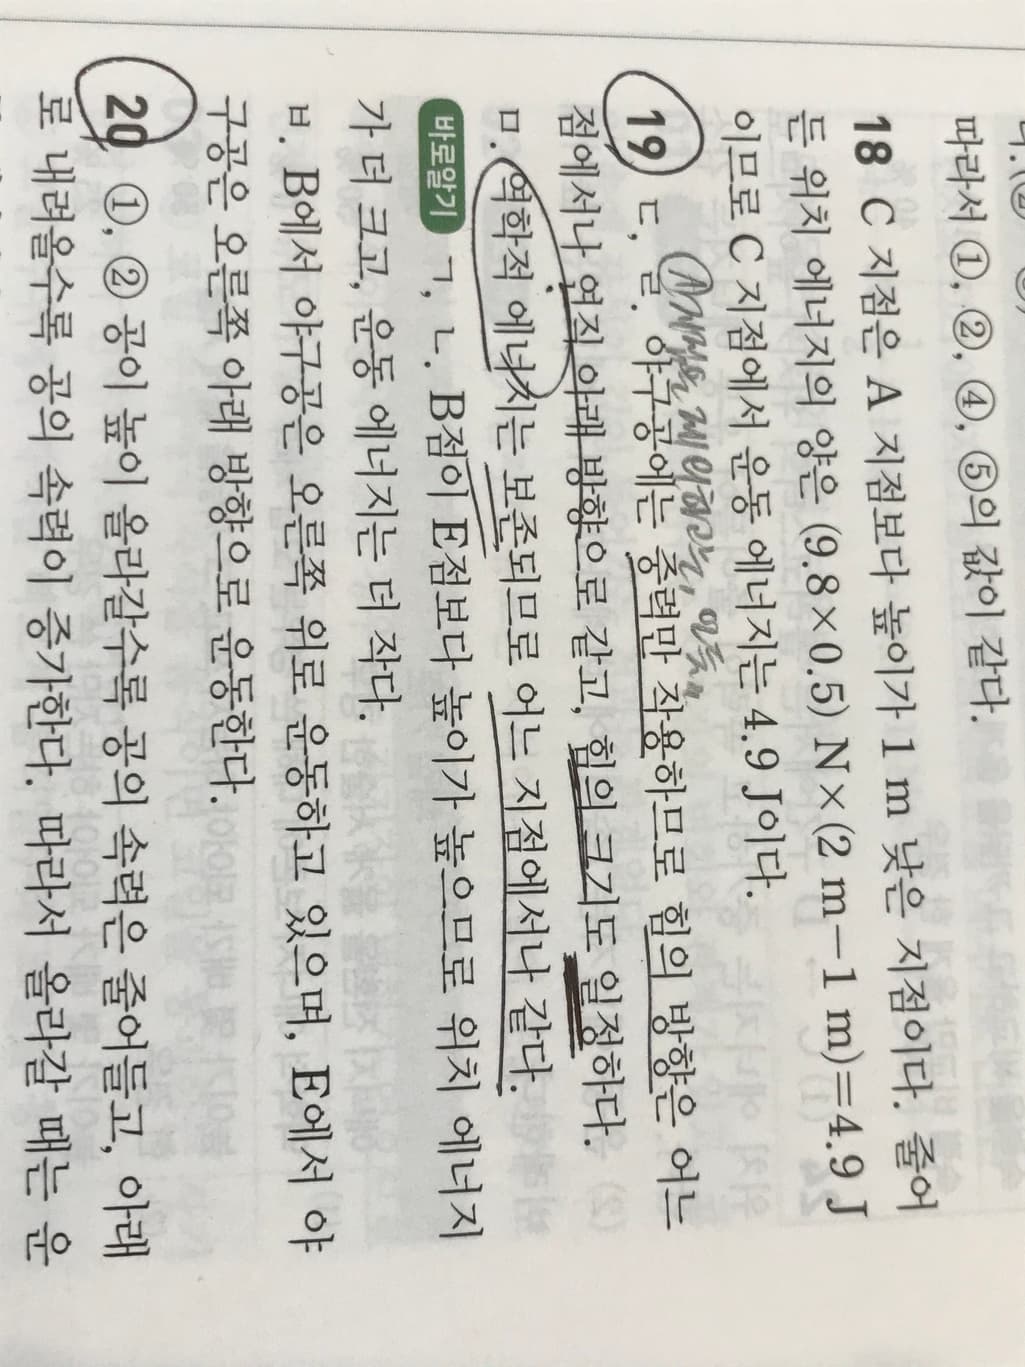 따라서 ①, ②, ④, ⑤의 값이 같다.
18 C 지점은 A 지점보다 높이가 1 m 낮은 지점이다. 줄어
든 위치 에너지의 양은 (9.8×0.5) N×(2 m-1 m)=4.9 J
이므로 C 지점에서 운동 에너지는 4.9 J이다.
19 ㄷ, ㄹ. 야구공에는 중력만 작용하므로 힘의 방향은 어느
점에서나 연직 아래 방향으로 같고, 힘의 크기도 일정하다.
ㅁ. 역학적 에너지는 보존되므로 어느 지점에서나 같다.
바로알기 ㄱ, ㄴ. B점이 E점보다 높이가 높으므로 위치 에너지
가 더 크고, 운동 에너지는 더 작다.
ㅂ. B에서 야구공은 오른쪽 위로 운동하고 있으며, E에서 야
구공은 오른쪽 아래 방향으로 운동한다.
20 ①, ② 공이 높이 올라갈수록 공의 속력은 줄어들고, 아래
로 내려올수록 공의 속력이 증가한다. 따라서 올라갈 때는 운